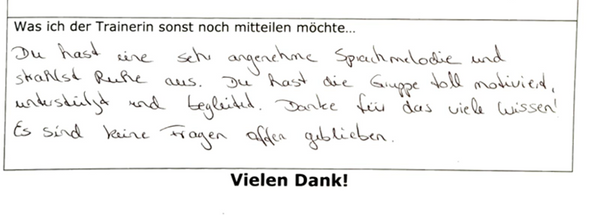 Was ich der Trainerin sonst noch mitteilen möchte...
Du hast eine sehr angenehme Sprachmelodie und
strahlst Ruhe aus. Du hast die Gruppe toll motiviert,
unterstützt und begleitet. Danke für das viele Wissen!
Es sind keine Fragen offen geblieben.
Vielen Dank!